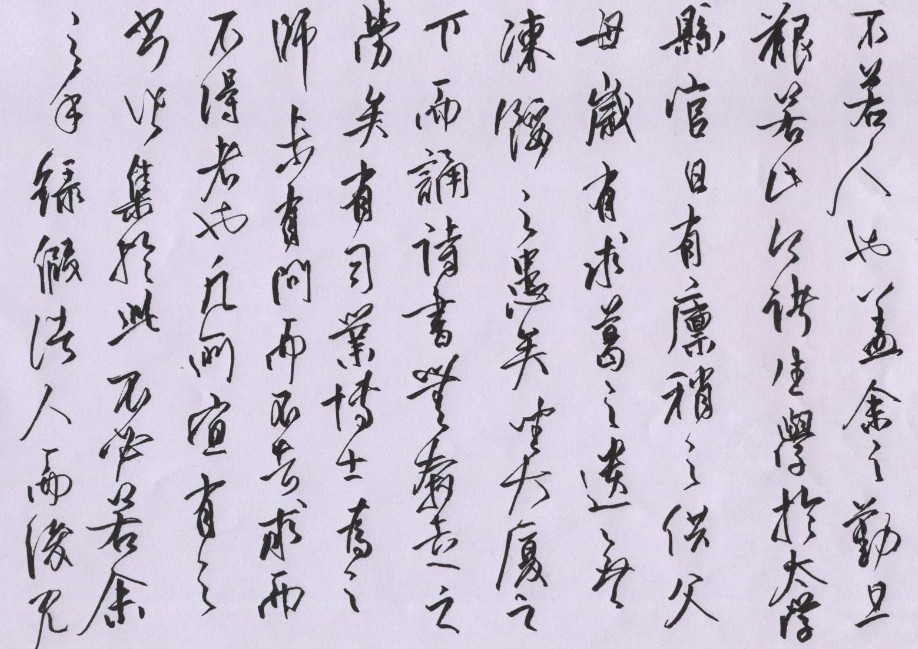 不若人也蓋余之勤且
艱若此今諸生學於太学
縣官日有廩稍之供父
母歲有求葛之遺無
凍餒之患矣坐大厦之
下而誦詩書無奔走之
勞矣有司業博士為之
師未有問而不告求而
不得者也凡所宜有之
書皆集於此不必若余
之手錄假諸人而後見